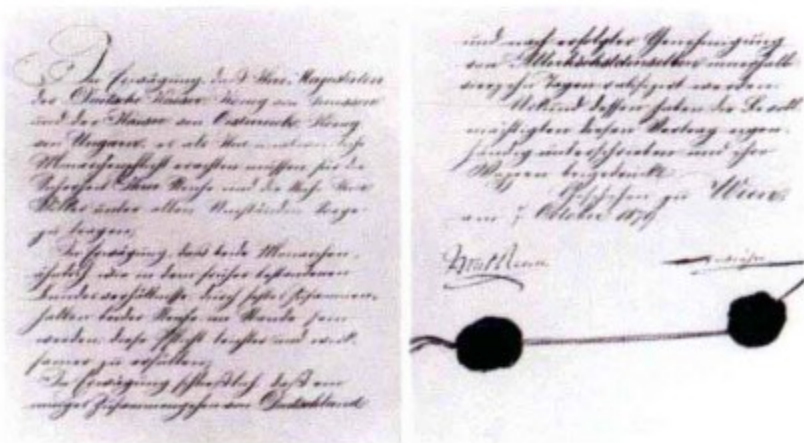 In Erwägung, daß Ihre Majestäten
der Deutsche Kaiser, König von Preussen
und der Kaiser von Oesterreich, König
von Ungarn, es als Ihre
Monarchenpflicht erachten müssen, für die
Sicherheit Ihrer Reiche und die Ruhe Ihrer
Völker unter allen Umständen Sorge
zu tragen;
In Erwägung, daß beide Monarchen,
ähnlich wie in dem früher bestandenen
Bundesverhältnisse, durch festes Zusammen-
halten beider Reiche im Stande sein
werden, diese Pflicht leichter und wirk-
samer zu erfüllen;
In Erwägung schließlich, daß ein
inniges Zusammengehen von Deutschland
und nach erfolgter Genehmigung
von Allerhöchstdenselben innerhalb
vierzehn Tagen ratificirt werden.
Urkund dessen haben die Bevoll-
mächtigten diesen Vertrag eigen-
händig unterschrieben und ihre
Wappen beigedrückt.
Geschehen zu Wien
am 7. October 1879